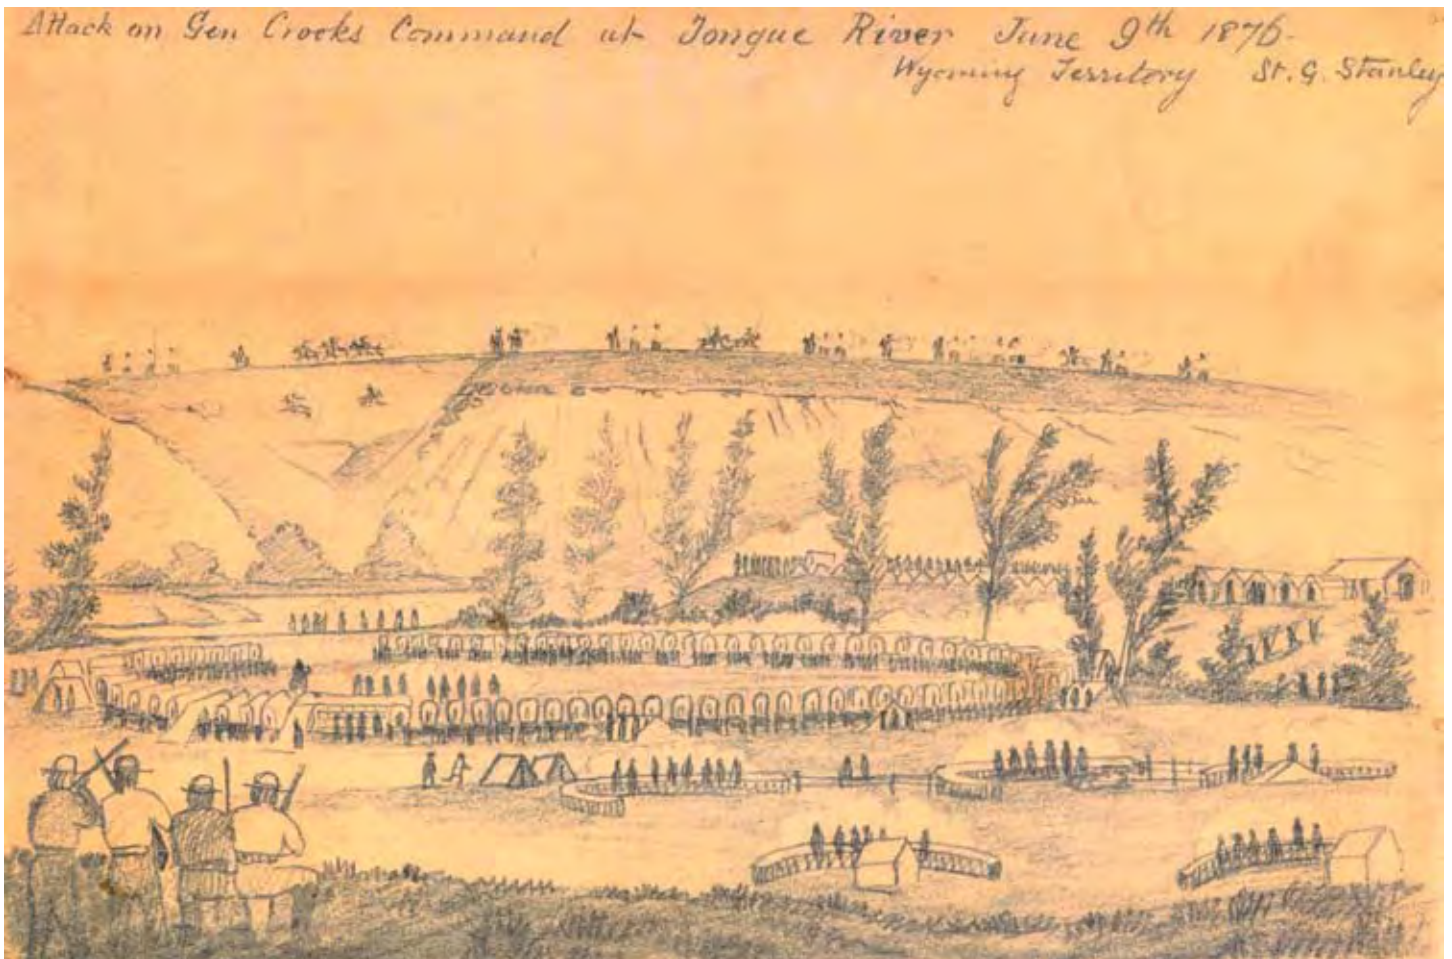 Attack on Gen Crooks Command at Tongue River June 9th 1876-
Wyoming Territory St. G. Stanley